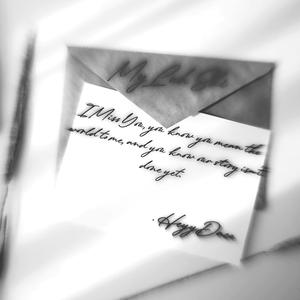 My
I Miss You, you know you mean the
world to me, and you know our story isn't
done yet.